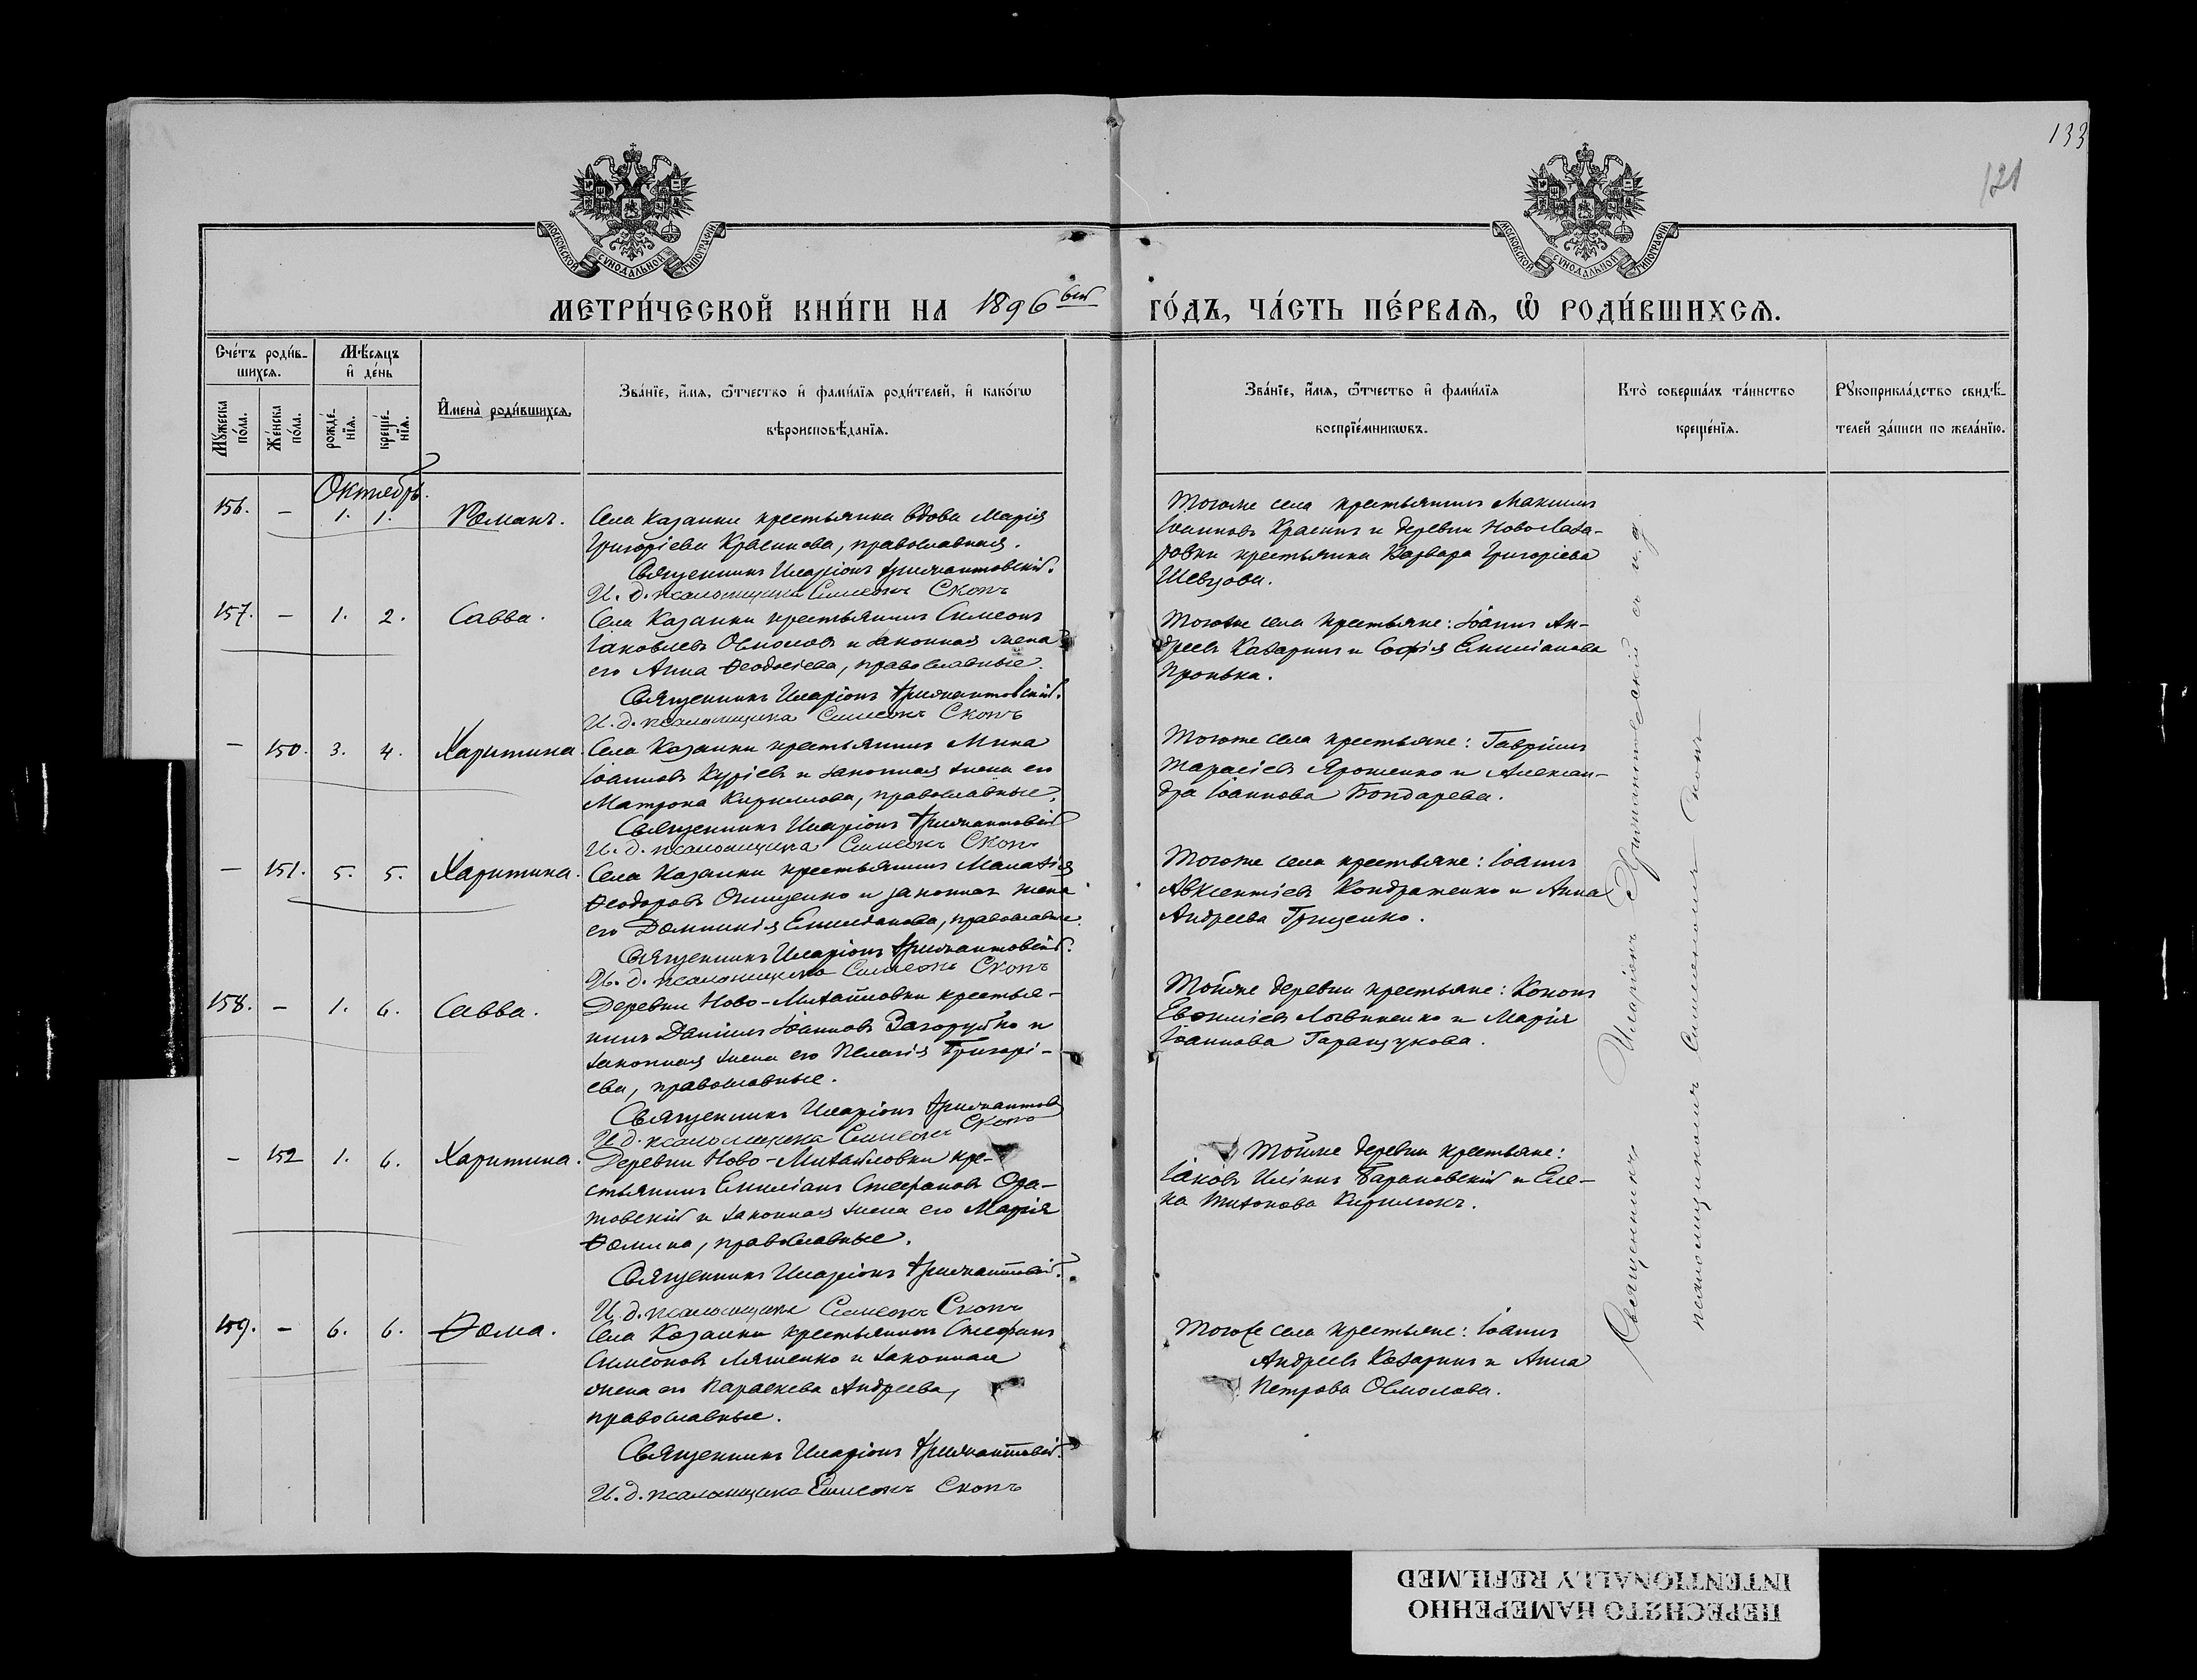 133
121
МОСКОВСКОЙ СѴНОДАЛЬНОЙ ТИПОГРАФІИ
МОСКОВСКОЙ СѴНОДАЛЬНОЙ ТИПОГРАФІИ
МЕТРИ́ЧЕСКОЙ КНИ́ГИ НА 1896 ГО́ДЪ, ЧА́СТЬ ПЕ́РВАѦ, Ѿ РОДИ́ВШИХСѦ.
Сче́тъ роди́в-
шихсѧ.
Мꙋ́жеска по́ла.
Же́нска по́ла.
Мѣ́сѧцъ
и҆ де́нь
рожде́-
нїѧ.
креще́-
нїѧ.
И҆мена̀ роди́вшихсѧ.
Зва́нїе, и҆́мѧ, ѻ҆́тчество и҆ фами́лїѧ роди́телей, и҆ како́гѡ
вѣроисповѣ́данїѧ.
Зва́нїе, и҆́мѧ, ѻ҆́тчество и҆ фами́лїѧ
воспрїе́мникѡвъ.
Кто̀ соверша́лъ та́инство
креще́нїѧ.
Рꙋкоприкла́дство свидѣ́-
телей за́писи по жела́нїю.
Октябрь.
156. - 1. 1. Романъ.
Села Казанки крестьянка вдова Марія
Григоріева Красикова, православная.
Священникъ Иларіонъ
И. д. псаломщика Симеонъ Скопъ
Тогоже села крестьянинъ Максимъ
Іоанновъ Красинъ и деревни Новолаза-
ровки крестьянка Варвара Григоріева
Шевцова.
157. - 1. 2. Савва.
Села Казанки крестьянинъ Симеонъ
Іаковлевъ Осмоловъ и законная жена
его Анна Ѳеодосіева, православные.
Священникъ Иларіонъ
И. д. псаломщика Симеонъ Скопъ
Тогоже села крестьяне: Іоаннъ Ан-
дреевъ Казаринъ и Софія Емиліанова
Пронька.
- 150. 3. 4. Харитина.
Села Казанки крестьянинъ Мина
Іоанновъ Куріевъ и законная жена его
Матрона Кириллова, православные.
Священникъ Иларіонъ
И. д. псаломщика Симеонъ Скопъ
Тогоже села крестьяне: Гавріилъ
Тарасіевъ Ярошенко и Алексан-
дра Іоаннова Бондарева.
- 151. 5. 5. Харитина.
Села Казанки крестьянинъ Малахія
Ѳеодоровъ Онищенко и законная жена
его Домникія Емиліанова, православные.
Священникъ Иларіонъ
И. д. псаломщика Симеонъ Скопъ
Тогоже села крестьяне: Іоаннъ
Авксентіевъ Кондратенко и Анна
Андреева Грищенко.
158. - 1. 6. Савва.
Деревни Ново-Михайловки крестья-
нинъ Даніилъ Іоанновъ Загоруйко и
законная жена его Пелагія Григорі-
ева, православные.
Священникъ Иларіонъ
И. д. псаломщика Симеонъ Скопъ
Тойже деревни крестьяне: Кононъ
Евѳиміевъ Литвиненко и Марія
Іоаннова Гаращукова.
- 152 1. 6. Харитина.
Деревни Ново-Михайловки кре-
стьянинъ Емиліанъ Стефановъ Ора-
товскій и законная жена его Марія
Ѳомина, православные.
Священникъ Иларіонъ
И. д. псаломщика Симеонъ Скопъ
Тойже деревни крестьяне:
Іаковъ Иліинъ Барановскій и Еле-
на Тихонова Кирилюкъ.
159. - 6. 6. Ѳома.
Села Казанки крестьянинъ Стефанъ
Симеоновъ Ляшенко и законная
жена его Параскева Андреева,
православные.
Священникъ Иларіонъ
И. д. псаломщика Симеонъ Скопъ
Тогоже села крестьяне: Іоаннъ
Андреевъ Казаринъ и Анна
Петрова Осмолова.
Священникъ Иларіонъ съ и. д.
псаломщикомъ Симеономъ Скопъ
ПЕРЕСНЯТО НАМЕРЕННО
INTENTIONALLY REFILMED